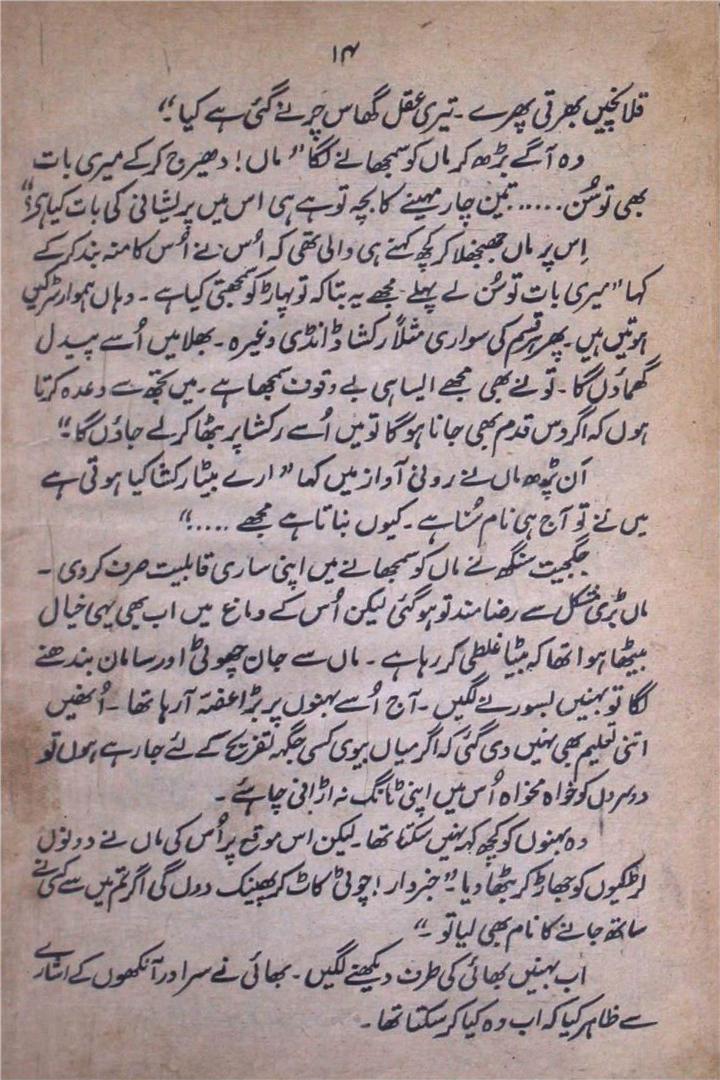 ۱۴
قلانچیں بھرتی پھرے ۔ تیری عقل گھاس چرنے گئی ہے کیا ۔“
وہ آگے بڑھ کر ماں کو سمجھانے لگا ”ماں! دھیرج کرکے میری بات
بھی تو سُن ...... تین چار مہینے کا بچہ تو ہے ہی اس میں پریشانی کی بات کیا ہی؟“
اِس پر ماں جھنجھلا کر کچھ کہنے ہی والی تھی کہ اُس نے اُس کا منہ بند کرکے
کہا ”میری بات تو سُن لے پہلے مجھے یہ بتا کہ تو پہاڑ کو سمجھتی کیا ہے ۔ وہاں ہموار سڑکیں
ہوتیں ہیں ۔ پھر ہر قسم کی سواری مثلاً رکشا ڈانڈی وغیرہ ۔ بھلا میں اُسے پیدل
گھماؤں گا ۔ تو نے بھی مجھے ایسا ہی بے وقوف سمجھا ہے ۔ میں تجھ سے وعدہ کرتا
ہوں کہ اگر دس قدم بھی جانا ہوگا تو میں اُسے رکشا پر بٹھا کر لے جاؤں گا ۔“
اَن پڑھ ماں نے رونی آواز میں کہا ”ارے بیٹا رکشا کیا ہوتی ہے
میں نے تو آج ہی نام سُنا ہے ۔ کیوں بناتا ہے مجھے ....“
جگجیت سنگھ نے ماں کو سمجھانے میں اپنی ساری قابلیت صرف کردی ۔
ماں بڑی مشکل سے رضامند تو ہوگئی لیکن اُس کے دماغ میں اب بھی یہی خیال
بیٹھا ہوا تھا کہ بیٹا غلطی کر رہا ہے ۔ ماں سے جان چھوٹی اور سامان بندھنے
لگا تو بہنیں بسورنے لگیں ۔ آج اُسے بہنوں پر بڑا غصّہ آرہا تھا ۔ اُنھیں
اتنی تعلیم بھی نہیں دی گئی کہ اگر میاں بیوی کسی جگہ تفریح کے لئے جا رہے ہوں تو
دوسروں کو خواہ مخواہ اُس میں اپنی ٹانگ نہ اڑانی چاہئے ۔
وہ بہنوں کو کچھ کہہ نہیں سکتا تھا ۔ لیکن اس موقع پر اُس کی ماں نے دونوں
لڑکیوں کو جھاڑ کر بٹھا دیا ۔ ”خبردار! چوٹی کاٹ کر پھینک دوں گی اگر تم میں سے کسی نے
ساتھ جانے کا نام بھی لیا تو ۔“
اب بہنیں بھائی کی طرف دیکھنے لگیں ۔ بھائی نے سر اور آنکھوں کے اشارے
سے ظاہر کیا کہ اب وہ کیا کرسکتا تھا ۔